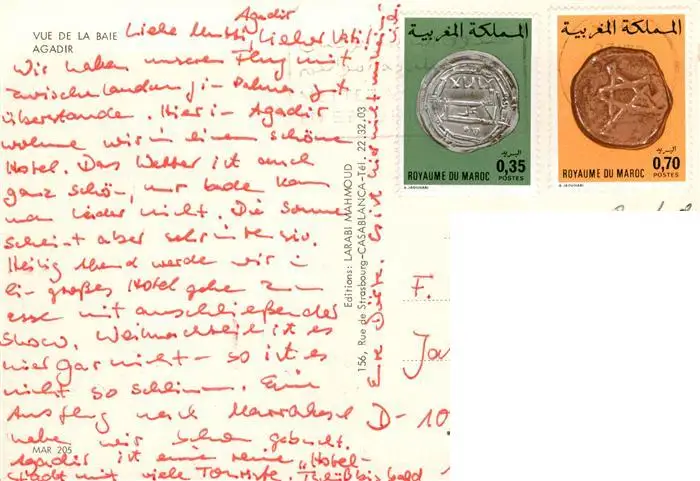 VUE DE LA BAIE
AGADIR
Agadir
Liebe Mutti, lieber Vati!
Wir haben unseren Flug mit
zwischenlanden in Palma gut
überstanden. Hier in Agadir
wohnen wir in einem schönen
Hotel. Das Wetter ist auch
ganz schön, nur baden kann
man leider nicht. Die Sonne
scheint aber sehr intensiv.
Heilig Abend werden wir in
ein großes Hotel gehen zum
essen mit anschließender
Show. Weihnachtlich ist es
hier gar nicht - so ist es
nicht so schlimm. Einen
Ausflug nach Marrakesch
haben wir schon gebucht.
Agadir ist eine reine "Hotel-
stadt mit viele Touristen. Tschüß bis bald
Eure Dörte. Es ist hier nicht
MAR 205
Editions: LARABI MAHMOUD
156, Rue de Strasbourg-CASABLANCA-Tél. 22.32.03
المملكة المغربية
البريد
0,35
ROYAUME DU MAROC POSTES
المملكة المغربية
البريد
0,70
ROYAUME DU MAROC POSTES
F.
D-10